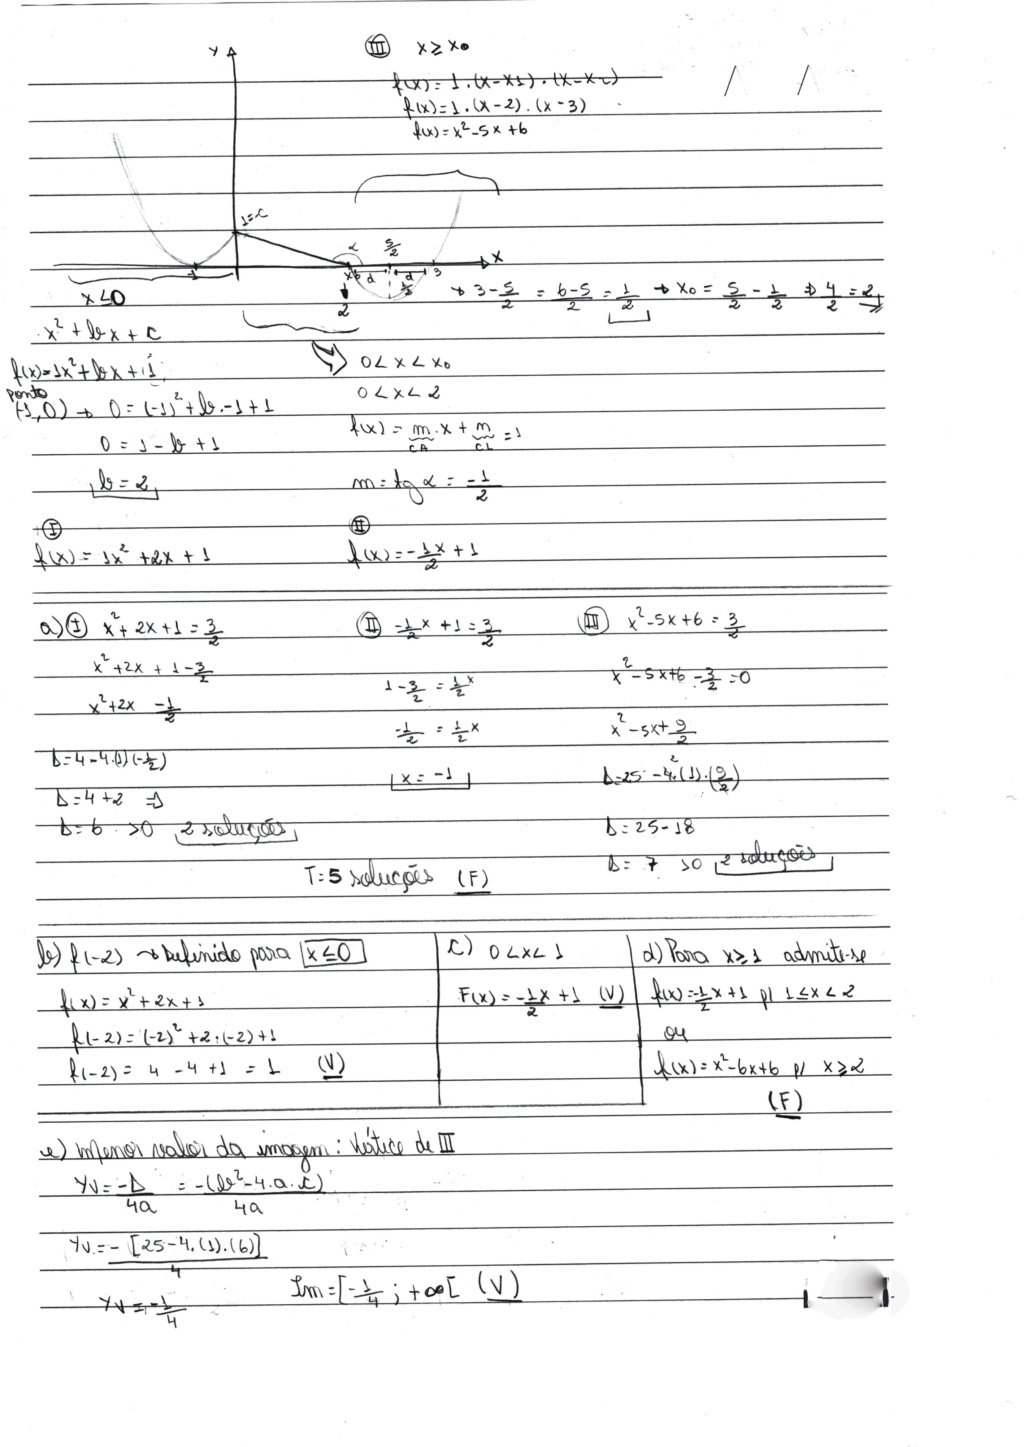 y
III x ≥ x₀
f(x) = 1.(x-x1).(x-x2)
f(x) = 1.(x-2).(x-3)
f(x) = x² - 5x + 6
1=c
α
5/2
x
-1
x₀
d
d
1/2
3
2
→ 3 - 5/2 = 6-5/2 = 1/2 → x₀ = 5/2 - 1/2 ⇒ 4/2 = 2
x ≤ 0
x² + bx + c
f(x) = 1x² + bx + 1
ponto
(-1,0) → 0 = (-1)² + b.-1 + 1
0 = 1 - b + 1
b = 2
0 < x < x₀
0 < x < 2
f(x) = m.x + n = 1
CA CL
m = tg α = -1/2
I
f(x) = 1x² + 2x + 1
II
f(x) = -1/2 x + 1
a) I x² + 2x + 1 = 3/2
x² + 2x + 1 - 3/2
x² + 2x - 1/2
Δ = 4 - 4.(1)(-1/2)
Δ = 4 + 2 ⇒
Δ = 6 > 0 2 soluções
II -1/2 x + 1 = 3/2
1 - 3/2 = 1/2 x
-1/2 = 1/2 x
x = -1
III x² - 5x + 6 = 3/2
x² - 5x + 6 - 3/2 = 0
x² - 5x + 9/2
Δ = 25 - 4.(1).(9/2)
2
Δ = 25 - 18
Δ = 7 > 0 2 soluções
T = 5 soluções (F)
b) f(-2) → Definido para x ≤ 0
f(x) = x² + 2x + 1
f(-2) = (-2)² + 2.(-2) + 1
f(-2) = 4 - 4 + 1 = 1 (V)
c) 0 < x < 1
F(x) = -1/2 x + 1 (V)
d) Para x ≥ 1 admite-se
f(x) = -1/2 x + 1 p/ 1 ≤ x < 2
ou
f(x) = x² - 6x + 6 p/ x ≥ 2
(F)
e) menor valor da imagem: Vértice de III
Yv = -Δ/4a = -(b² - 4.a.c)/4a
Yv = -[25 - 4.(1).(6)]/4
Yv = -1/4
Im = [-1/4 ; +∞[ (V)